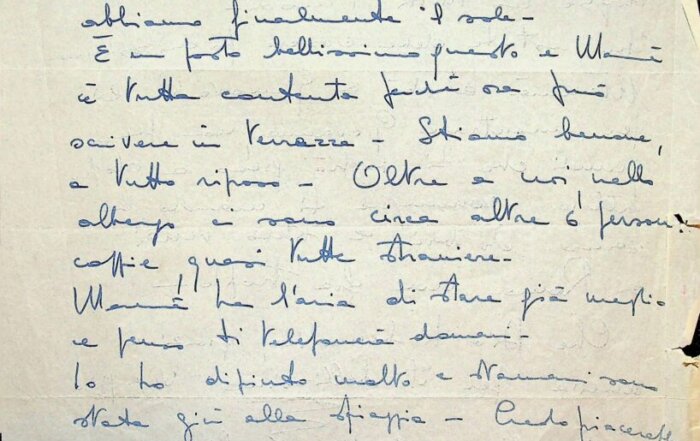 abbiamo finalmente il sole -
È un posto bellissimo questo e Mamã
è tutta contenta perchè ora può
scrivere in terrazza - Stiamo benone,
a tutto riposo - Oltre a noi, nello
albergo ci sono circa altre 6
coppie, quasi tutte straniere -
Mamã ha l'aria di stare già meglio
e penso ti telefonerà domani -
Io ho dipinto molto e stamani sono
stata giù alla spiaggia - Credo